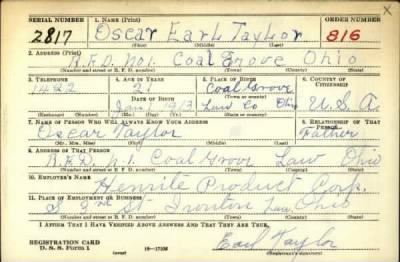 SERIAL NUMBER 1. Name (Print) ORDER NUMBER
2817 Oscar Earl Taylor 816
(First) (Middle) (Last)
2. Address (Print)
R.F.D. No1. Coal Grove Ohio
(Number and street or R. F. D. number) (Town) (County) (State)
3. Telephone 4. Age in Years 5. Place of Birth 6. Country of Citizenship
1422 27 Coal Grove
Date of Birth (Town or county)
Jan 1 1913 Law Co Ohio U.S.A.
(Exchange) (Number) (Mo.) (Day) (Yr.) (State or country)
7. Name of Person Who Will Always Know Your Address 8. Relationship of That Person
Oscar Taylor Father
(Mr., Mrs., Miss) (First) (Middle) (Last)
9. Address of That Person
R.F.D. n.1. Coal Grove Law Ohio
(Number and street or R. F. D. number) (Town) (County) (State)
10. Employer's Name
Product Corp.
11. Place of Employment or Business
S 2nd St Ironton Law. Ohio
(Number and street or R. F. D. number) (Town) (County) (State)
I Affirm That I Have Verified Above Answers and That They Are True.
REGISTRATION CARD
D. S. S. Form 1 16-17105 Earl Taylor